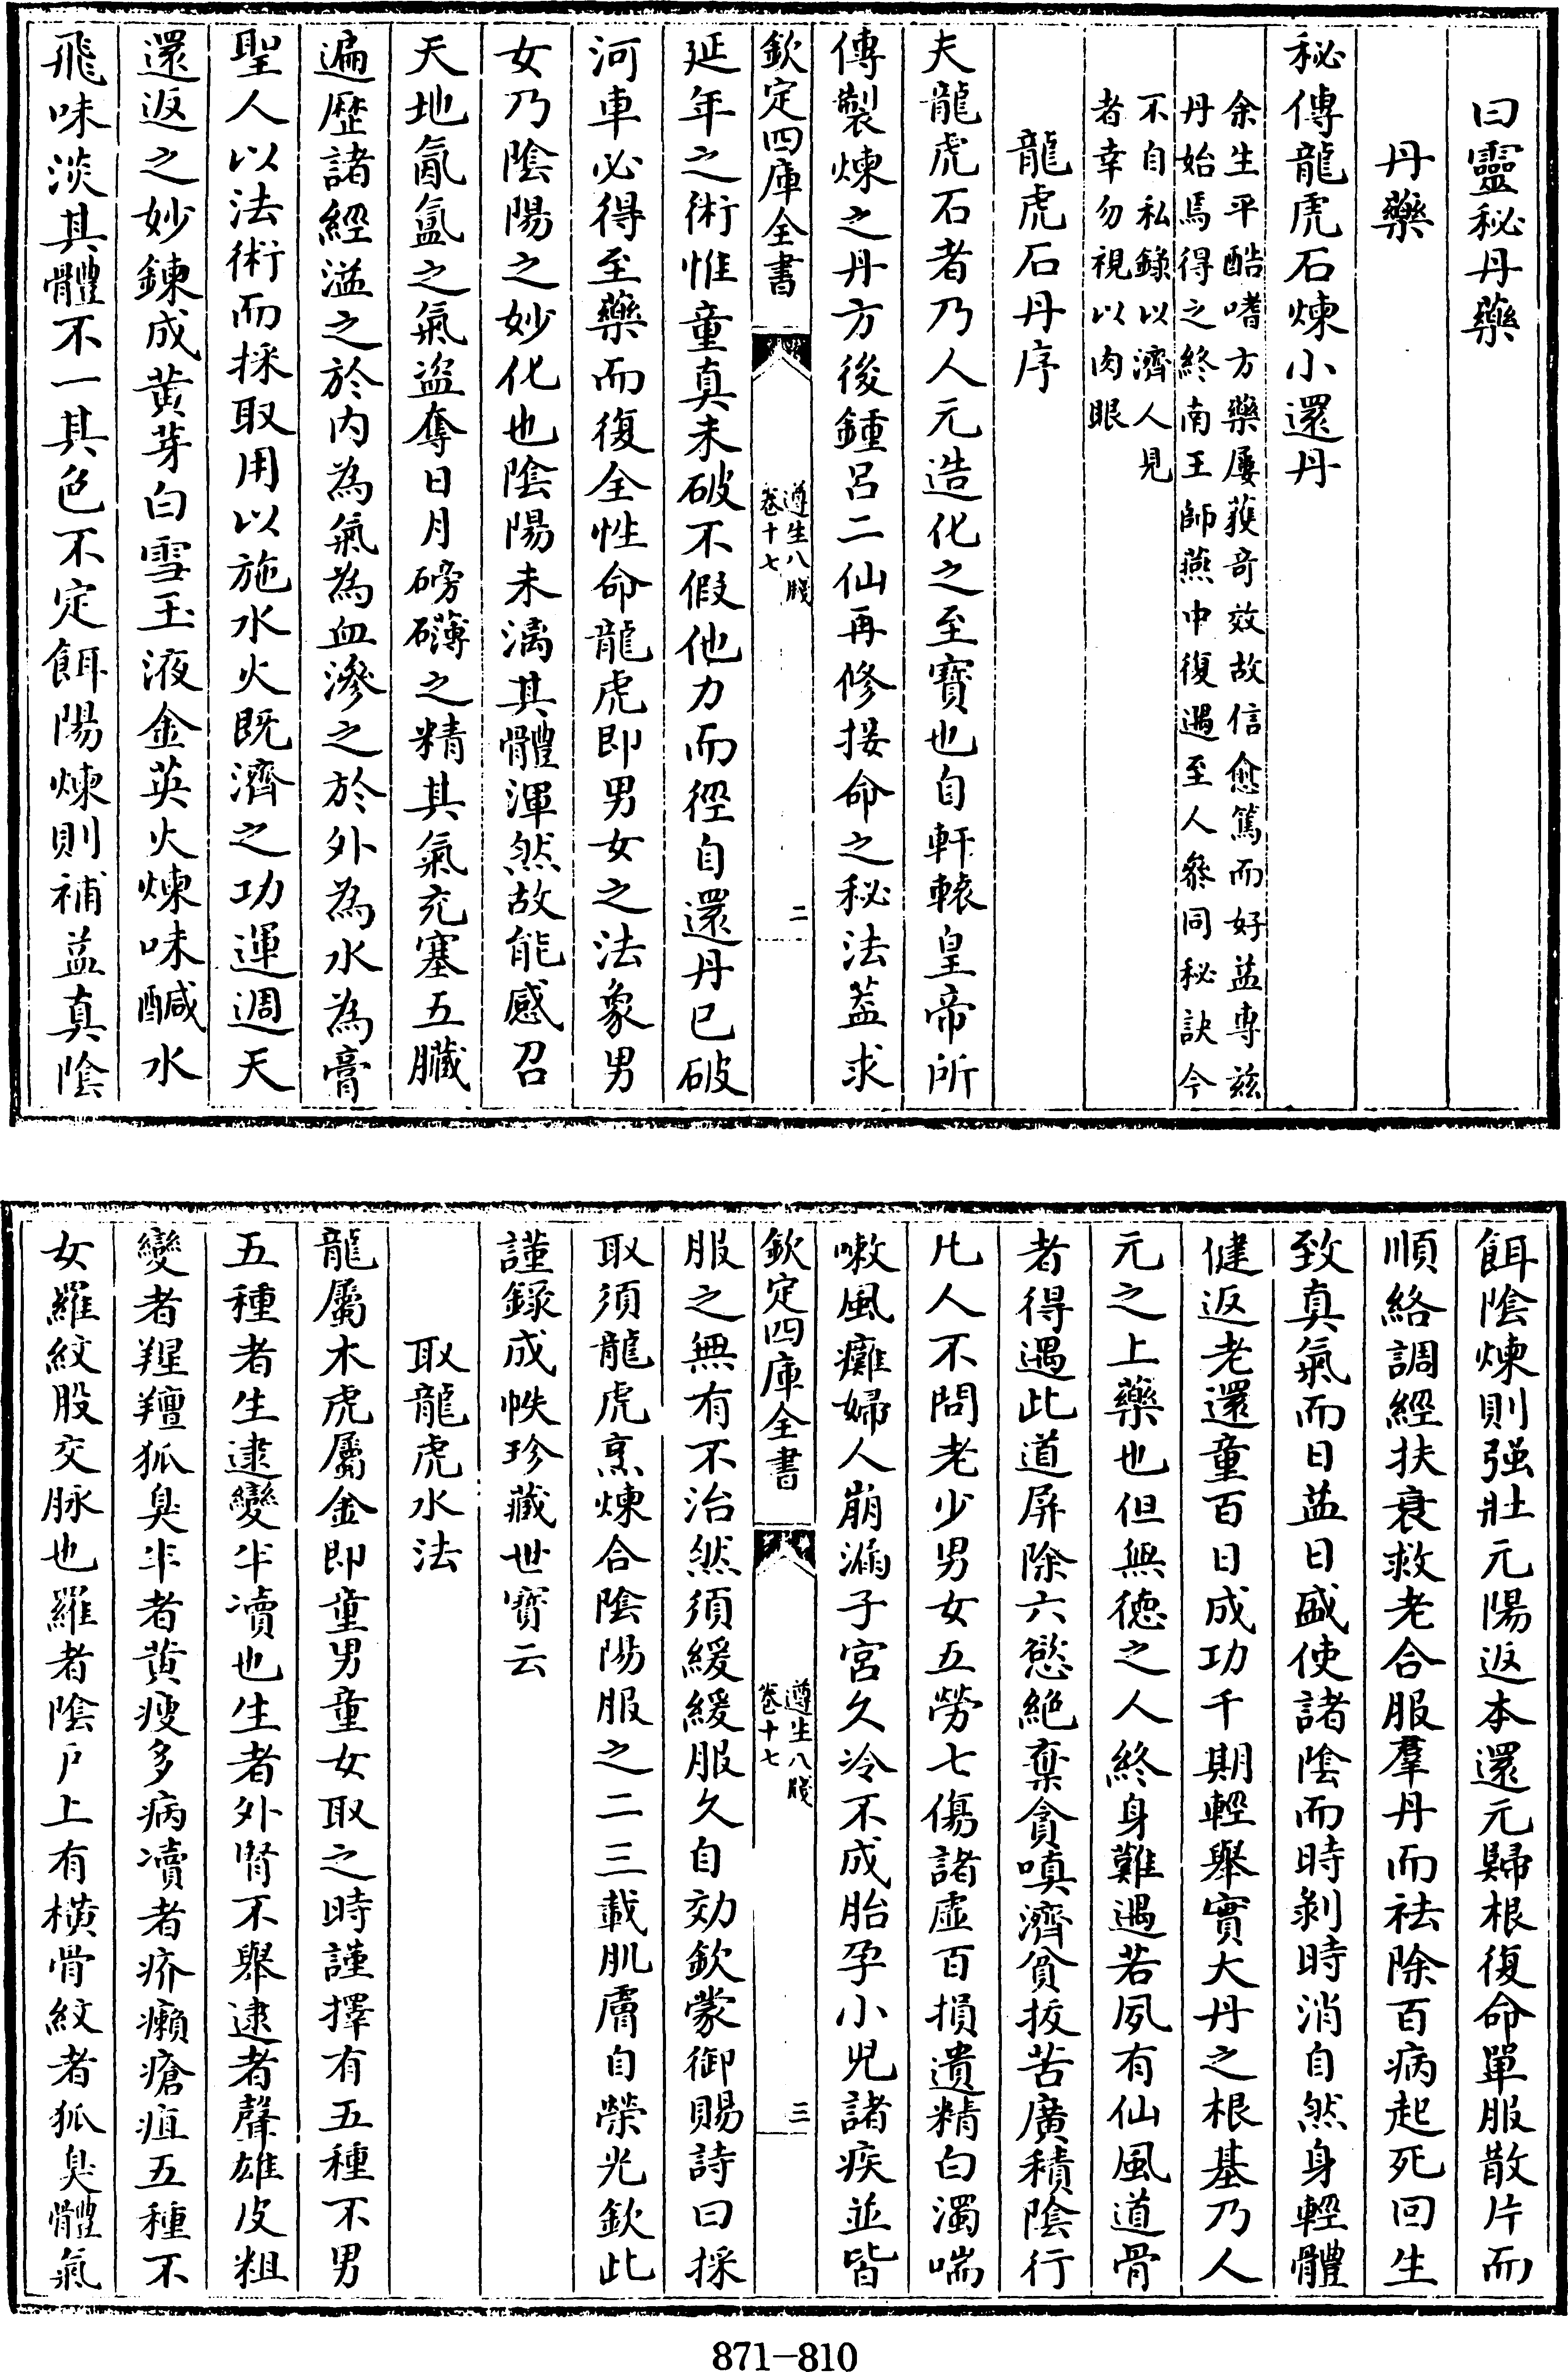 曰靈秘丹藥
丹藥
秘傳龍虎石煉小還丹
余生平酷嗜方藥屢獲奇效故信愈篤而好益專茲
丹始焉得之終南王師燕中復遇至人叅同秘訣今
不自私錄以濟人見
者幸勿視以肉眼
龍虎石丹序
夫龍虎石者乃人元造化之至寳也自軒轅皇帝所
傳製煉之丹方後鍾呂二仙再修接命之秘法葢求
欽定四庫全書
遵生八牋
卷十七
二
延年之術惟童真未破不假他力而徑自還丹已破
河車必得至藥而復全性命龍虎即男女之法象男
女乃陰陽之妙化也陰陽未漓其體渾然故能感召
天地氤氲之氣盜奪日月磅礴之精其氣充塞五臟
遍歷諸經溢之於内為氣為血滲之於外為水為膏
聖人以法術而採取用以施水火既濟之功運週天
還返之妙鍊成黄芽白雪玉液金英火煉味鹹水
飛味淡其體不一其色不定餌陽煉則補益真陰
餌陰煉則强壯元陽返本還元歸根復命單服散片而
順絡調經扶衰救老合服羣丹而祛除百病起死回生
致真氣而日益日盛使諸陰而時剥時消自然身輕體
健返老還童百日成功千期輕舉實大丹之根基乃人
元之上藥也但無德之人終身難遇若夙有仙風道骨
者得遇此道屏除六慾絶棄貪嗔濟貧抜苦廣積陰行
凡人不問老少男女五勞七傷諸虚百損遺精白濁喘
嗽風癱婦人崩漏子宮久冷不成胎孕小兒諸疾並皆
欽定四庫全書
遵生八牋
卷十七
三
服之無有不治然須緩緩服久自効欽蒙御賜詩曰採
取須龍虎烹煉合陰陽服之二三載肌膚自榮光欽此
謹録成帙珍藏世寳云
取龍虎水法
龍屬木虎屬金即童男童女取之時謹擇有五種不男
五種者生逮變半凟也生者外腎不舉逮者聲雄皮粗
變者羥羶狐臭半者黄瘦多病凟者疥癩瘡疽五種不
女羅紋股交脉也羅者陰户上有横骨紋者狐臭體氣
871-810